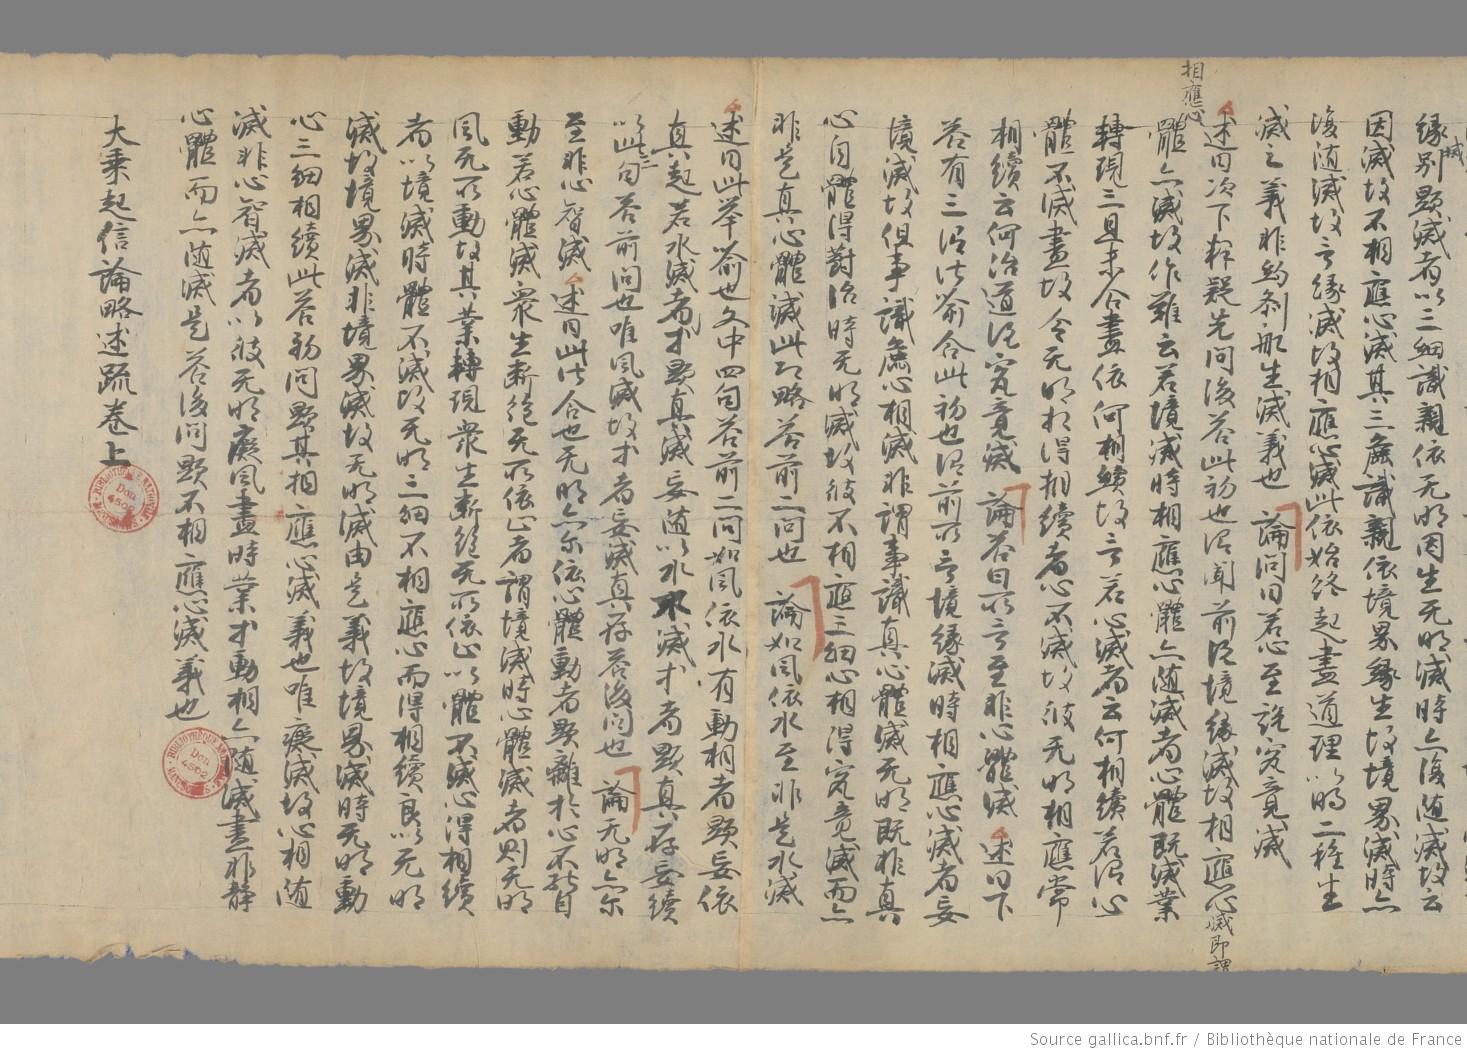 緣別顯滅者以三細識親依无明因生无明滅時亦復隨滅故云
滅
因滅故不相應心滅其三麁識親依境界緣生故境界滅時亦
復隨滅故言緣滅故相應心滅此依始終起盡道理以明二種生
滅之義非約刹那生滅義也 論問曰若心至說究竟滅
相應心
述曰次下釋疑先問後答此初也謂聞前說境緣滅故相應心
滅即謂
體亦滅故作難云若境滅時相應心體亦隨滅者心體既滅業
轉現三且未合盡依何相續故言若心滅者云何相續若謂心
體不滅盡故令无明相得相續者心不滅故彼无明相應常
相續云何治道說究竟滅 論答曰所言至非心體滅 述曰下
答有三謂法喻合此初也謂前所言境緣滅時相應心滅者妄
境滅故但事識麁心相滅非謂事識真心體滅无明既非真
心自體得對治時无明滅故彼不相應三細心相得究竟滅而亦
非是真心體滅此即略答前二問也 論如風依水至非是水滅
述曰此舉喻也文中四句答前二問如風依水有動相者顯妄依
真起若水滅者才顯真滅妄隨以水不滅才者顯真存妄續
以此二句答前問也唯風滅故才者妄滅真存答後問也 論无明亦尔
至非心智滅 述曰此法合也无明亦尔依心體動者顯離於心不能自
動若心體滅衆生斷絕无所依止者謂境滅時心體滅者則无明
風无所動故其業轉現衆生斷絕无所依止以體不滅心得相續
者以境滅時體不滅故无明三細不相應心而得相續良以无明
滅故境界滅非境界滅故无明滅由是義故境界滅時无明動
心三細相續此答初問顯其相應心滅義也唯癡滅故心相隨
滅非心智滅者以彼无明癡風盡時業才動相亦隨滅盡非靜
心體而亦隨滅是答後問顯不相應心滅義也
大乘起信論略述疏卷上
BIBLIOTHÈQUE NATIONALE
Don
4502
MANUSCRITS
BIBLIOTHÈQUE NATIONALE
Don
4502
MANUSCRITS
Source gallica.bnf.fr / Bibliothèque nationale de France